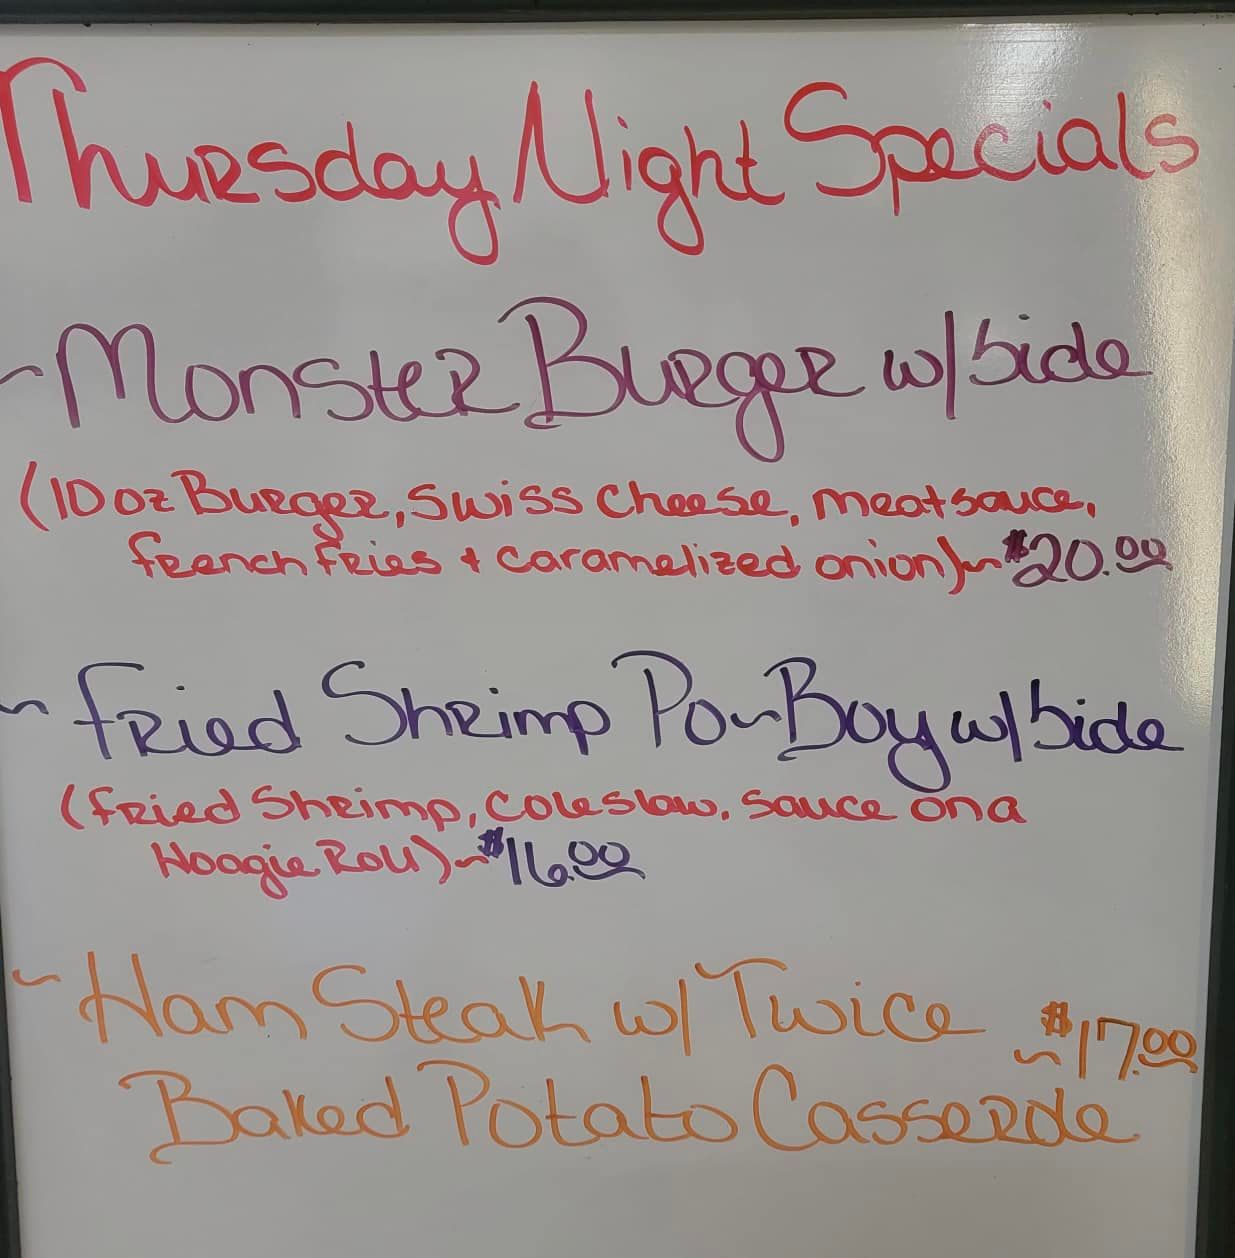 Thursday Night Specials
~Monster Burger w/side
(10oz Burger, Swiss Cheese, meatsauce,
french fries + caramelized onion)~$20.00
~ fried Shrimp Po~Boy w/side
(fried Shrimp, coleslaw, sauce on a
Hoagie Roll)~$16.00
~Ham Steak w/ Twice
~$17.00
Baked Potato Casserole